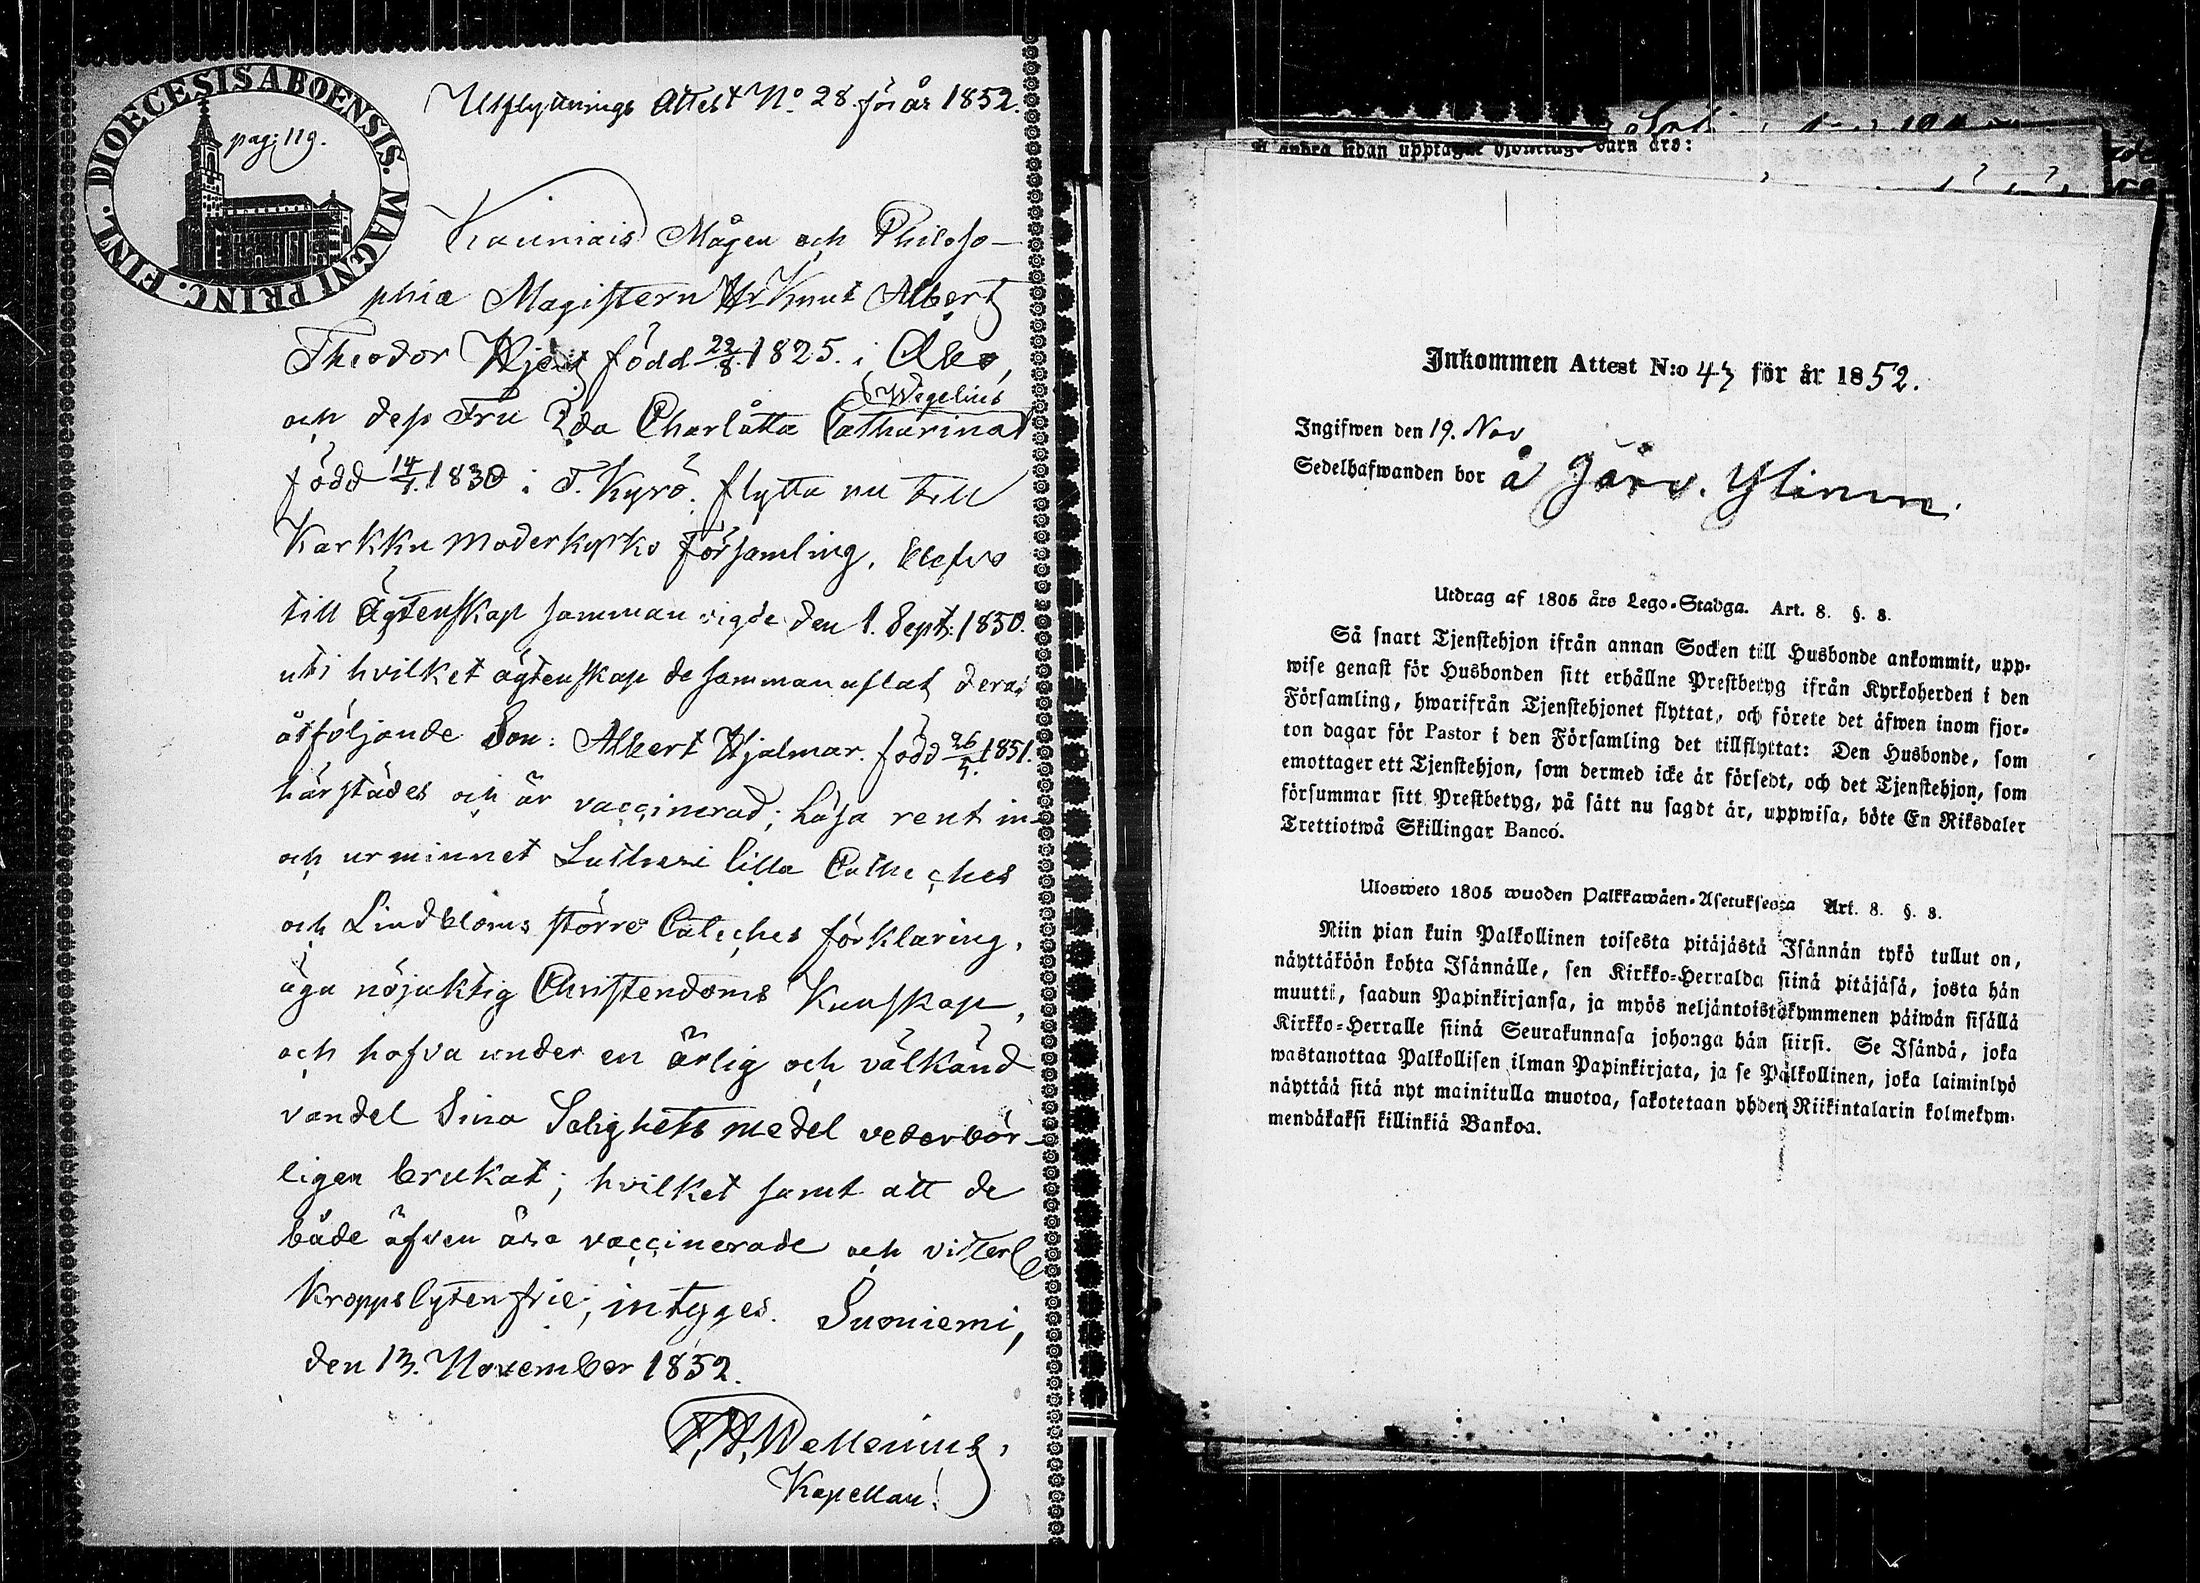 DIOECESIS ABOENSIS. MAGNI PRINC. FINL.
pag: 119.
Utflyttnings Attest No. 28. för år 1852.
Mågen och Philoso-
phiæ Magistern Hr Knut Albert
Theodor född 22/8. 1825. i Åbo,
och dess Fru Ida Charlåtta Catharina
Wegelius
född 14/7. 1830 i T. Kyrö. flytta nu till
Karkku moderkyrko församling, blefvo
till Ägtenskap samman vigde den 1. Sept: 1850.
uti hvilket ägtenskap de sammanaflat deras
åtföljande Son: Albert Hjalmar. född 26/7. 1851.
härstädes och är vaccinerad; Läsa rent in-
och ur minnet Lutheri lilla Cateches
och Lindbloms större Cateches förklaring,
äga nöjaktig Christendoms Kunskap,
och hafva under en ärlig och välkänd
vandel Sina Salighets medel vederbör-
ligen brukat; hvilket samt att de
både äfven äro vaccinerade och vitterl
kroppslyten frie, intyges. Suoniemi,
den 13. November 1852.
Wallenius,
Kapellan.
å andra sidan upptagne barn äro:
Inkommen Attest N:o 43 för år 1852.
Ingifwen den 19. Nov
Sedelhafwanden bor å Järv. Ylinen.
Utdrag af 1805 års Lego-Stadga. Art. 8. §. 8.
Så snart Tjenstehjon ifrån annan Socken till Husbonde ankommit, upp-
wise genast för Husbonden sitt erhållne Prestbetyg ifrån Kyrkoherden i den
Församling, hwarifrån Tjenstehjonet flyttat, och förete det äfwen inom fjor-
ton dagar för Pastor i den Församling det tillflyttat: Den Husbonde, som
emottager ett Tjenstehjon, som dermed icke är försedt, och det Tjenstehjon, som
försummar sitt Prestbetyg, på sätt nu sagdt är, uppwisa, böte En Riksdaler
Trettiotwå Skillingar Banco.
Ulosweto 1805 wuoden Palkkawäen-Asetuksesta Art. 8. §. 8.
Niin pian kuin Palkollinen toisesta pitäjästä Isännän tykö tullut on,
näyttäköön kohta Isännälle, sen Kirkko-Herralda siinä pitäjäsä, josta hän
muutti, saadun Papinkirjansa, ja myös neljäntoistakymmenen päiwän sisällä
Kirkko-Herralle siinä Seurakunnasa johonga hän siirsi. Se Isändä, joka
wastanottaa Palkollisen ilman Papinkirjata, ja se Palkollinen, joka laiminlyö
näyttää sitä nyt mainitulla muotoa, sakotetaan yhden Riikintalarin kolmekym-
mendäkaksi killinkiä Bankoa.